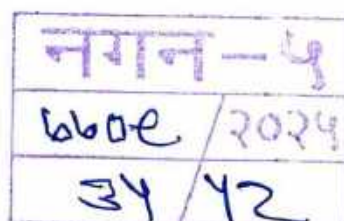 नगन-५
७७०९ / २०२५
३५ / ५२